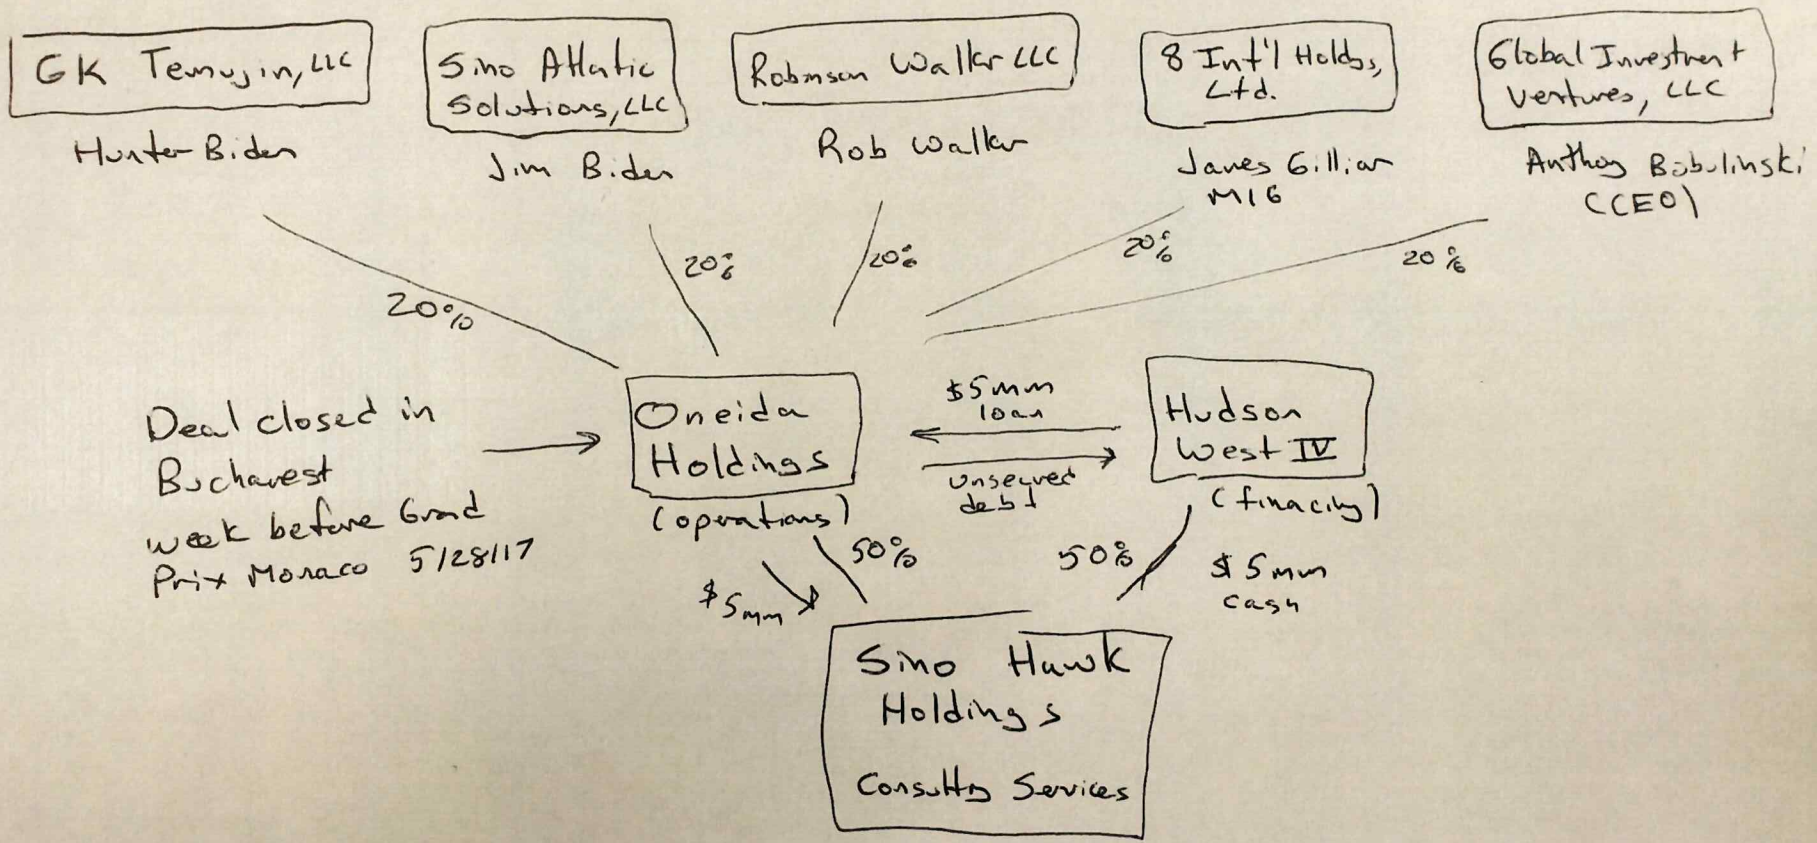 GK Temujin, LLC
Hunter Biden
Sino Atlantic
Solutions, LLC
Jim Biden
Robinson Walker LLC
Rob Walker
8 Int'l Holdgs,
Ltd.
James Gilliar
MI6
Global Investment
Ventures, LLC
Anthony Bobulinski
(CEO)
20%
20%
20%
20%
20%
Deal closed in
Bucharest
week before Grand
Prix Monaco 5/28/17
Oneida
Holdings
(operations)
$5mm
loan
unsecured
debt
Hudson
West IV
(financing)
50%
$5mm
50%
$5mm
cash
Sino Hawk
Holdings
Consulting Services